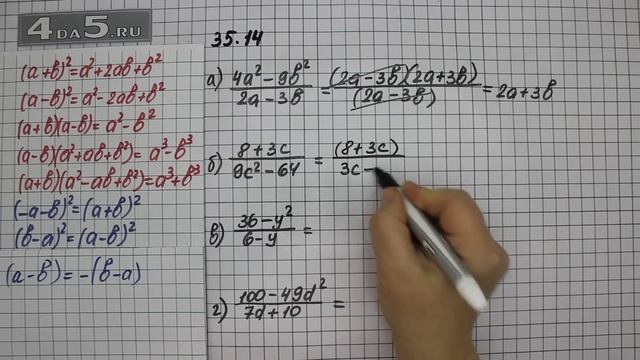 4DA5.RU
(a+b)²=a²+2ab+b²
(a-b)²=a²-2ab+b²
(a+b)(a-b)=a²-b²
(a-b)(a²+ab+b²)=a³-b³
(a+b)(a²-ab+b²)=a³+b³
(-a-b)²=(a+b)²
(b-a)²=(a-b)²
(a-b)=-(b-a)
35.14
а) (4a²-9b²)/(2a-3b) = (2a-3b)(2a+3b)/(2a-3b) = 2a+3b
б) (8+3c)/(9c²-64) = (8+3c)/3c-
в) (36-y²)/(6-y) =
г) (100-49d²)/(7d+10) =